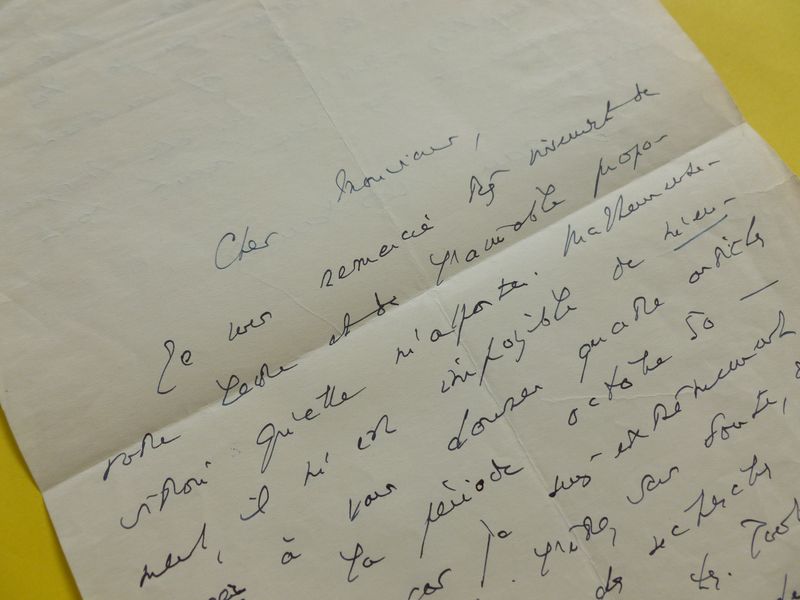 Cher Monsieur,
Je vous remercie très vivement de
votre lettre et de l'aimable propo-
sition qu'elle m'apporte. Malheureuse-
ment, il m'est impossible de
à vous donner quatre articles
la période octobre 50 —
car je suis extrêmement
sans doute,
de recherches